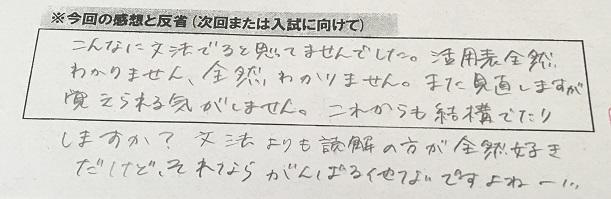 ※今回の感想と反省(次回または入試に向けて)
こんなに文法でると思ってませんでした。活用表全然
わかりません、全然わかりません。また見直しますが
覚えられる気がしません。これからも結構でたり
しますか?文法よりも読解の方が全然好き
だけど、それならがんばる他ないですよねー…